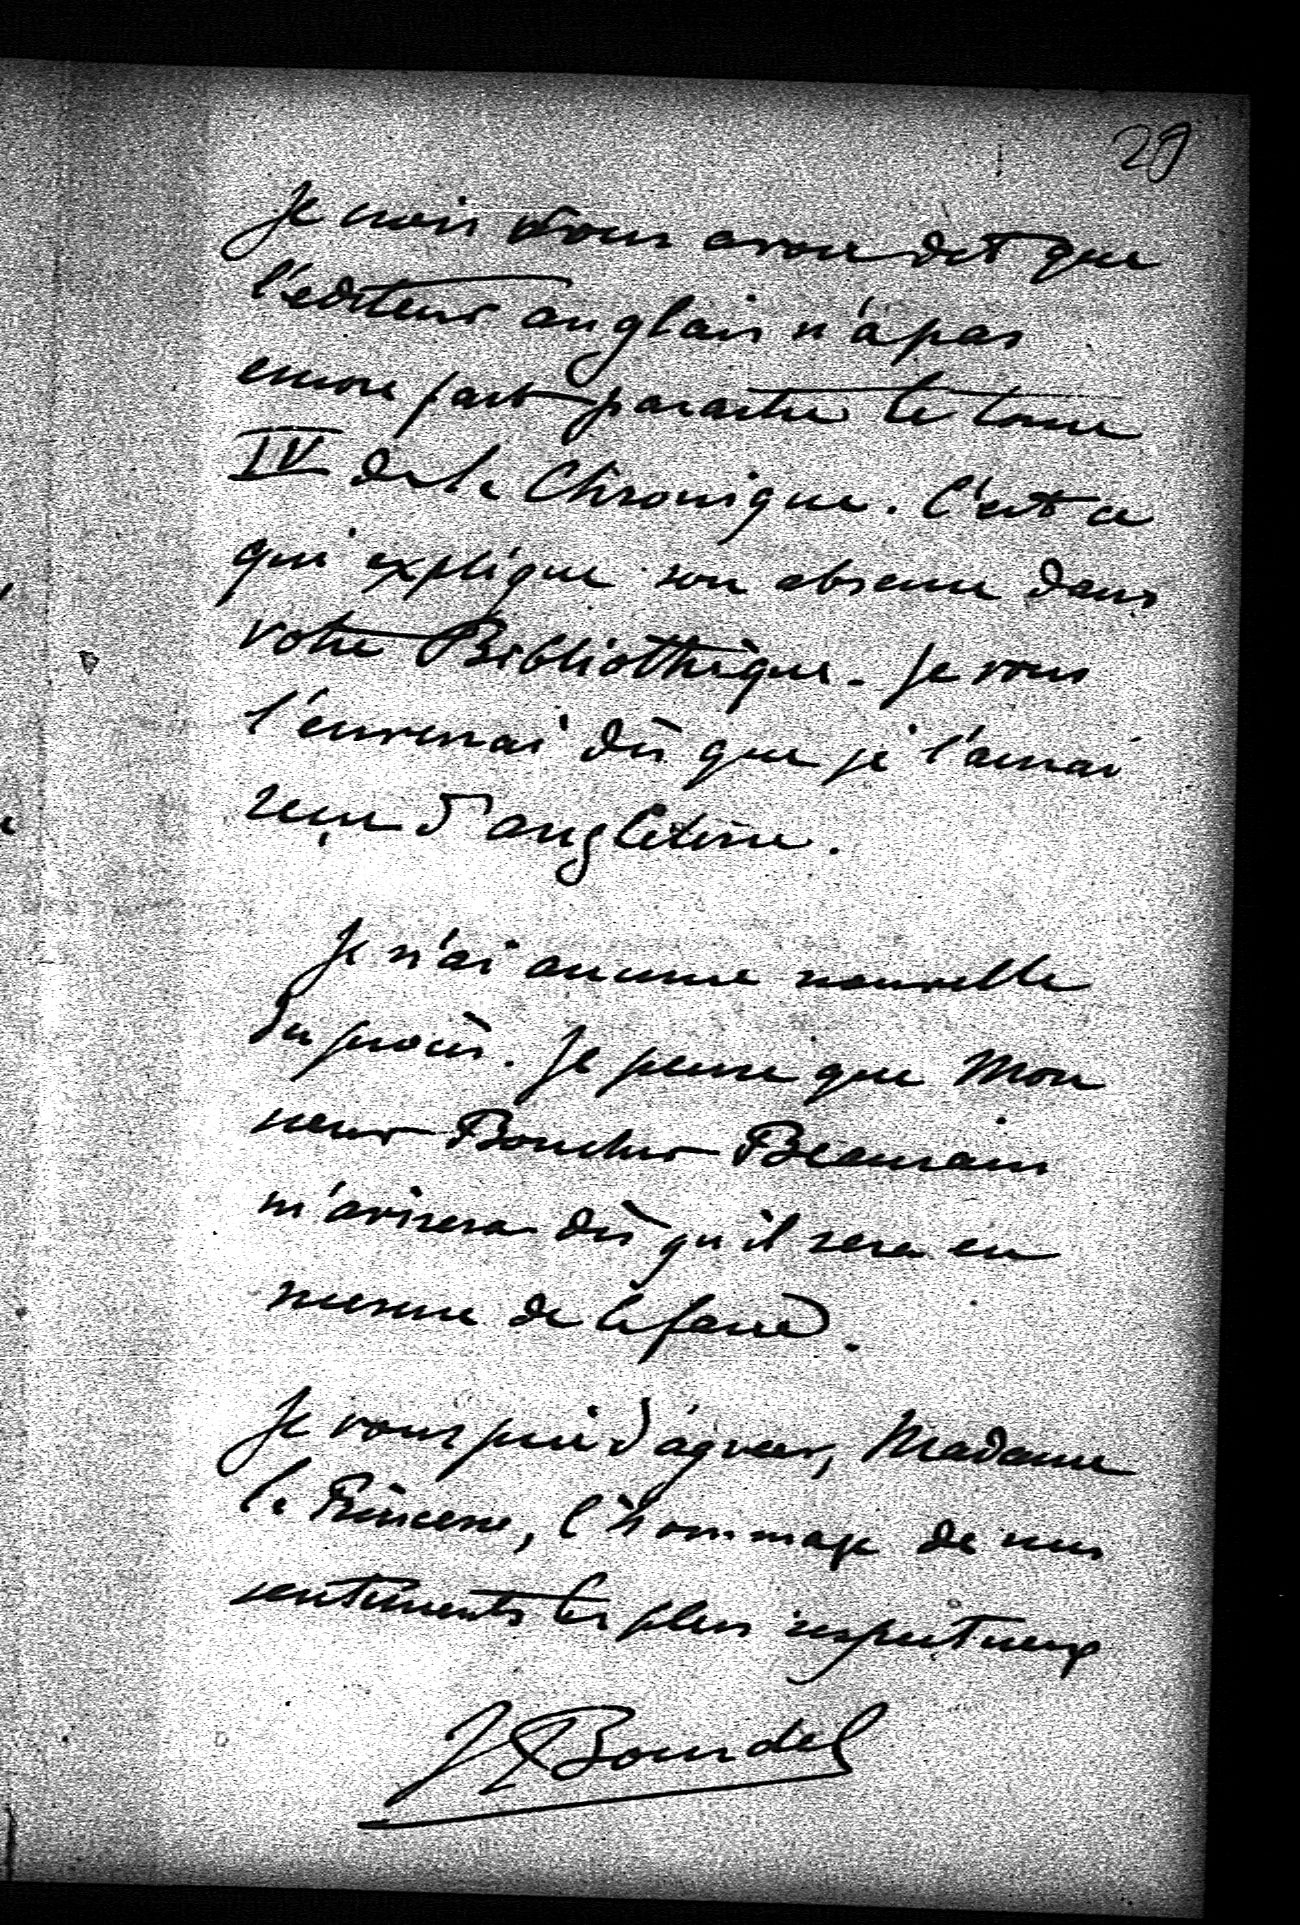 29
Je crois vous avoir dit que
l'éditeur anglais n'a pas
encore fait paraitre le tome
IV de la Chronique. C'est ce
qui explique son absence dans
votre Bibliothèque. Je vous
l'enverrai dès que je l'aurai
reçu d'angleterre.
Je n'ai aucune nouvelle
du procès. Je pense que Mon
sieur Beaurain
m'avisera dès qu'il sera en
mesure de le faire.
Je vous prie d'agréer, Madame
la Princesse, l'hommage de mes
sentiments les plus respectueux
J Bourdel